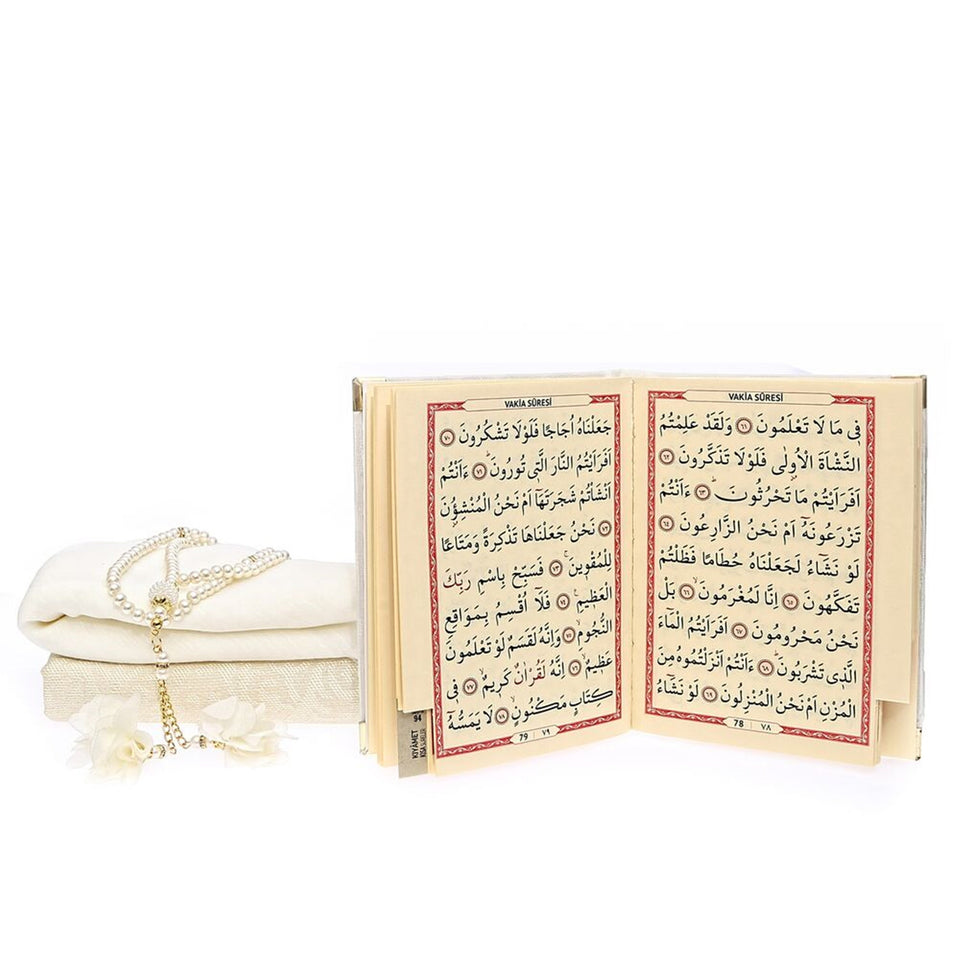 VAKİA SÛRESİ
فٖى مَا لَا تَعْلَمُونَ ﴿٦١﴾ وَلَقَدْ عَلِمْتُمُ
النَّشْاَةَ الْاُولٰى فَلَوْلَا تَذَكَّرُونَ ﴿٦٢﴾
اَفَرَاَيْتُمْ مَا تَحْرُثُونَ ﴿٦٣﴾ ءَاَنْتُمْ
تَزْرَعُونَهُٓ اَمْ نَحْنُ الزَّارِعُونَ ﴿٦٤﴾
لَوْ نَشَٓاءُ لَجَعَلْنَاهُ حُطَامًا فَظَلْتُمْ
تَفَكَّهُونَ ﴿٦٥﴾ اِنَّا لَمُغْرَمُونَ ﴿٦٦﴾ بَلْ
نَحْنُ مَحْرُومُونَ ﴿٦٧﴾ اَفَرَاَيْتُمُ الْمَٓاءَ
الَّذٖى تَشْرَبُونَ ﴿٦٨﴾ ءَاَنْتُمْ اَنْزَلْتُمُوهُ مِنَ
الْمُزْنِ اَمْ نَحْنُ الْمُنْزِلُونَ ﴿٦٩﴾ لَوْ نَشَٓاءُ
78 ٧٨
VAKİA SÛRESİ
جَعَلْنَاهُ اُجَاجًا فَلَوْلَا تَشْكُرُونَ ﴿٧٠﴾
اَفَرَاَيْتُمُ النَّارَ الَّتٖى تُورُونَ ﴿٧١﴾ ءَاَنْتُمْ
اَنْشَاْتُمْ شَجَرَتَهَٓا اَمْ نَحْنُ الْمُنْشِؤُ۫نَ
﴿٧٢﴾ نَحْنُ جَعَلْنَاهَا تَذْكِرَةً وَمَتَاعًا
لِلْمُقْوٖينَ ﴿٧٣﴾ فَسَبِّحْ بِاسْمِ رَبِّكَ
الْعَظٖيمِ ﴿٧٤﴾ فَلَٓا اُقْسِمُ بِمَوَاقِعِ
النُّجُومِ ﴿٧٥﴾ وَاِنَّهُ لَقَسَمٌ لَوْ تَعْلَمُونَ
عَظٖيمٌ ﴿٧٦﴾ اِنَّهُ لَقُرْاٰنٌ كَرٖيمٌ ﴿٧٧﴾ فٖى
كِتَابٍ مَكْنُونٍ ﴿٧٨﴾ لَا يَمَسُّهُٓ
79 ٧٩
94
KIYÂMET
KISA SURELER